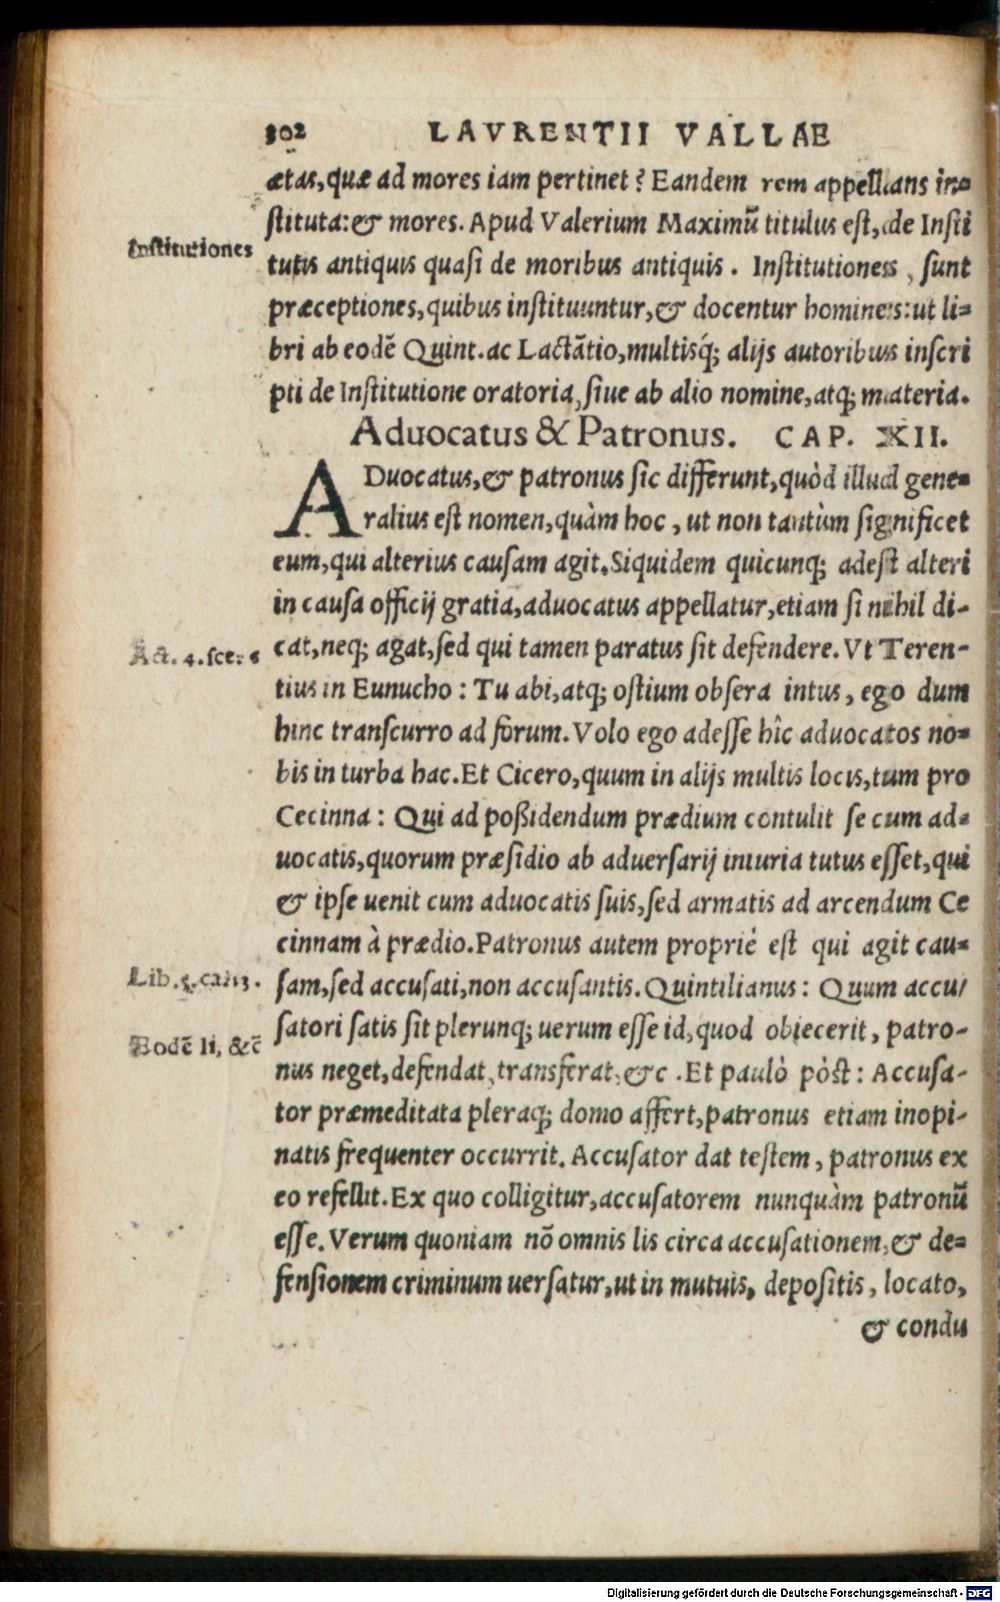 302 LAVRENTII VALLAE
ætas, quæ ad mores iam pertinet? Eandem rem appellans in=
stituta: & mores. Apud Valerium Maximũ titulus est, de Insti
Institutiones
tutis antiquis quasi de moribus antiquis. Institutiones, sunt
præceptiones, quibus instituuntur, & docentur homines: ut li=
bri ab eodẽ Quint. ac Lactãtio, multisq́; alijs autoribus inscri
pti de Institutione oratoria, siue ab alio nomine, atq; materia.
Aduocatus & Patronus. CAP. XII.
ADuocatus, & patronus sic differunt, quòd illud gene=
ralius est nomen, quàm hoc, ut non tantùm significet
eum, qui alterius causam agit. Siquidem quicunq; adest alteri
in causa officij gratia, aduocatus appellatur, etiam si nihil di-
Act. 4. sce. 6
cat, neq; agat, sed qui tamen paratus sit defendere. Vt Teren-
tius in Eunucho: Tu abi, atq; ostium obsera intus, ego dum
hinc transcurro ad forum. Volo ego adesse hîc aduocatos no=
bis in turba hac. Et Cicero, quum in alijs multis locis, tum pro
Cecinna: Qui ad poßidendum prædium contulit se cum ad=
uocatis, quorum præsidio ab aduersarij iniuria tutus esset, qui
& ipse uenit cum aduocatis suis, sed armatis ad arcendum Ce
cinnam à prædio. Patronus autem propriè est qui agit cau=
Lib. 5. ca. 13.
sam, sed accusati, non accusantis. Quintilianus: Quum accu/
satori satis sit plerunq; uerum esse id, quod obiecerit, patro-
Eodẽ li, &c̃
nus neget, defendat, transferat, &c. Et paulò pòst: Accusa-
tor præmeditata pleraq; domo affert, patronus etiam inopi-
natis frequenter occurrit. Accusator dat testem, patronus ex
eo refellit. Ex quo colligitur, accusatorem nunquàm patronũ
esse. Verum quoniam nõ omnis lis circa accusationem, & de=
fensionem criminum uersatur, ut in mutuis, depositis, locato,
& condu
Digitalisierung gefördert durch die Deutsche Forschungsgemeinschaft - DFG